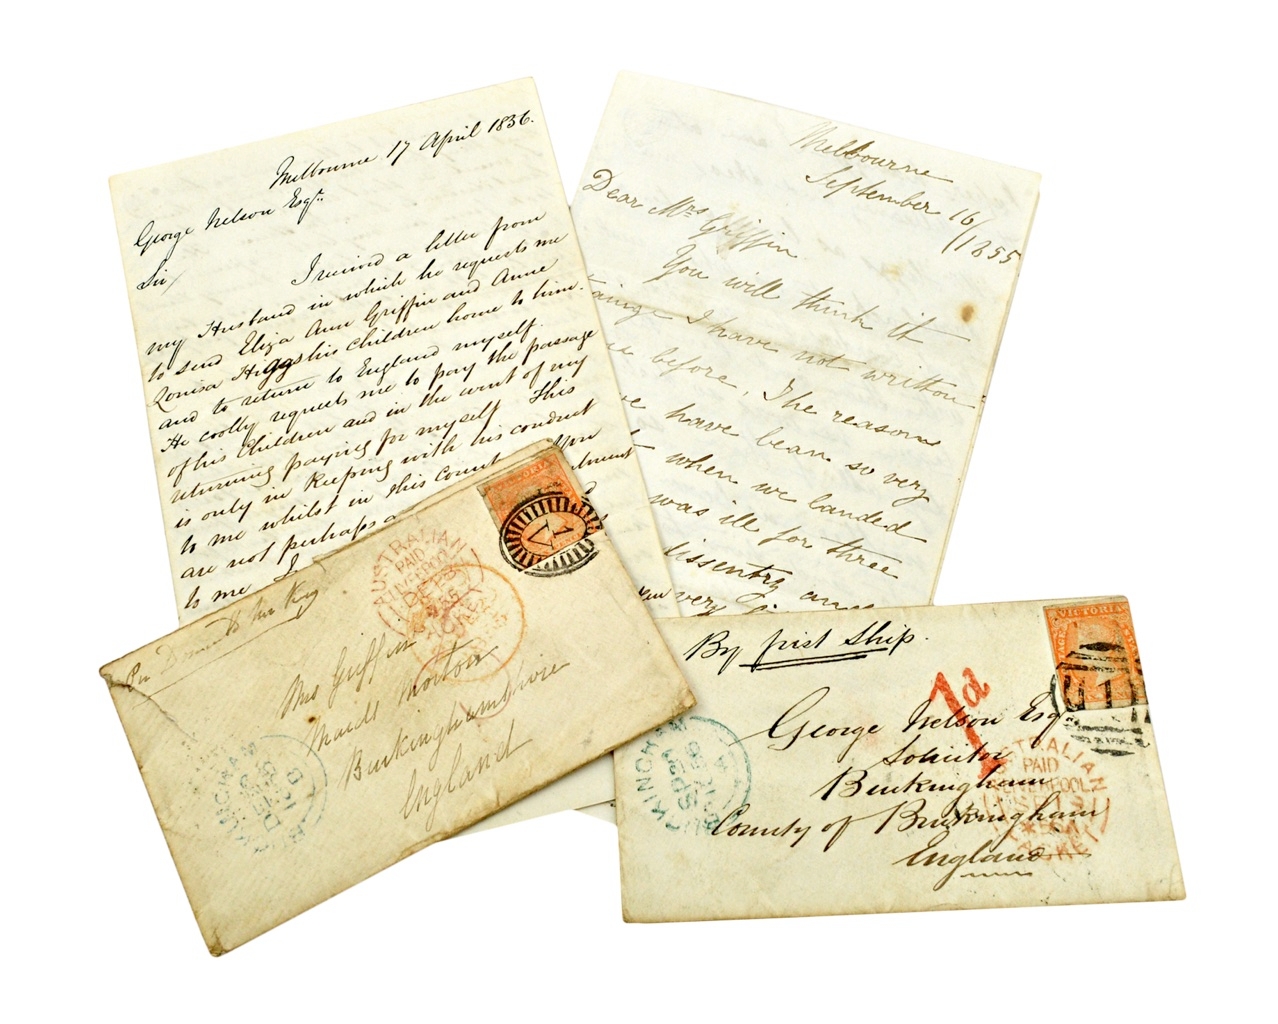 Melbourne 17 April 1836.
George Nelson Esqr.
Sir/
I received a letter from
my Husband in which he requests me
to send Eliza Ann Griffin and Anne
Louisa Higgs his Children home to him.
and to return to England myself.
He coolly requests me to pay the passage
of his Children and in the event of my
returning paying for myself. This
is only in Keeping with his conduct
to me whilst in this
are not perhaps
to me
Melbourne
September 16/1855
Dear Mrs Griffin
You will think it
I have not written
before. The reasons
have bean so very
when we landed
was ill for three
dissentry
very
Mrs Griffin
Maids Morton
Buckinghamshire
England
VICTORIA
1 V
AUSTRALIAN
PAID
LIVERPOOL
PACKET
By first Ship.
1d
George Nelson Esqr
Solicitor
Buckingham
County of Buckingham
England
VICTORIA
1
AUSTRALIAN
PAID
LIVERPOOL
PACKET
BUCKINGHAM